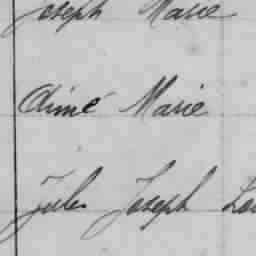 Joseph Marie
Aimé Marie
Jules Joseph